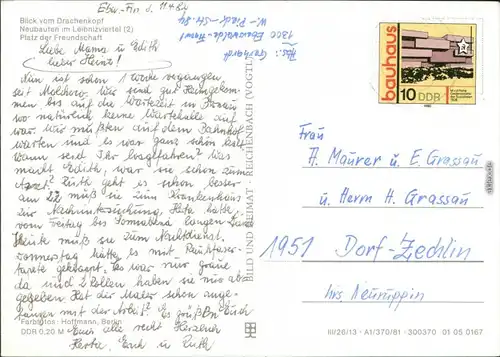 Blick vom Drachenkopf
Neubauten im Leibnizviertel (2)
Platz der Freundschaft
Ebw.-Fin d. 11.4.84
Abs: Gerhardt
1300 Eberswalde-Finow 1
W-Pieck-Str. 84
Liebe Mama u Edith
lieber Heinz!
Nun ist schon 1 Woche vergangen
seit Melchow. Wir sind gut heimgekom
men bis auf die Wartezeit in
wo natürlich keine Wartehalle auf
war. Wir mußten auf dem Bahnhof
warten und es war ganz schön kalt
wann seid Ihr losgefahren? Was
macht Edith, war sie schon zum
Arzt. Ruth geht es schon besser
am 22 muß sie zum Krankenhaus
zur Nachuntersuchung. Heute hatte
vom Freitag bis Sonnabend langen
Heute muß sie zum Nachtdienst.
Donnerstag hatte es mit Rauhfaser-
tapete geklappt. Es war nur graue
da und 2 Rollen haben sie nur ab
gegeben. Hat der Maler schon ange-
fangen mit der Arbeit. Es grüßen Euch
Euch alle recht Herzlich
Herta, Erich u Ruth
Farbfotos: Hoffmann, Berlin
DDR 0,20 M
BILD UND HEIMAT · REICHENBACH (VOGTL)
bauhaus
10 DDR
Frau
A Maurer u. E Grassau
u Herrn H. Grassau
1951 Dorf-Zechlin
Krs Neuruppin
III/26/13 · A1/370/81 · 300370 01 05 0167